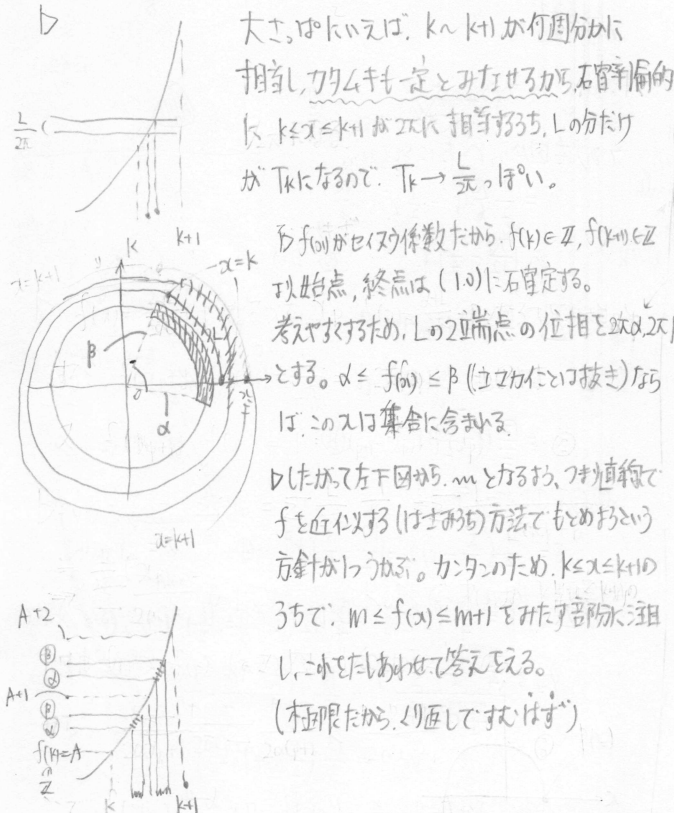 大ざっぱにいえば、k〜k+1が何周分かに
相当し、カタムキも一定とみなせるから、確率論的
に k≤x≤k+1 が 2πに相当するうち、Lの分だけ
が Tkになるので、Tk→L/2π っぽい。
L/2π
k k+1
▷ f(x)がセイスウ係数だから、f(k)∈Z, f(k+1)∈Z
より始点, 終点は (1.0)に確定する。
考えやすくするため、Lの2端点の位相を2πα, 2πβ
とする。α≤f(x)≤β (コマカイことは抜き)なら
ば、このxは集合に含まれる。
x=k+1
x=k
L
β
α
0
x=k+1
▷ したがって左下図から、mとなるよう、つまり直線で
fを近似する(はさみうち)方法でもとめようという
方針が1つうかぶ。カンタンのため、k≤x≤k+1の
うちで、m≤f(x)≤m+1 をみたす部分に注目
し、これをたしあわせて答えをえる。
(極限だから、くり返しですむはず)
A+2
β
α
A+1
β
α
f(k)=A
Z
k k+1